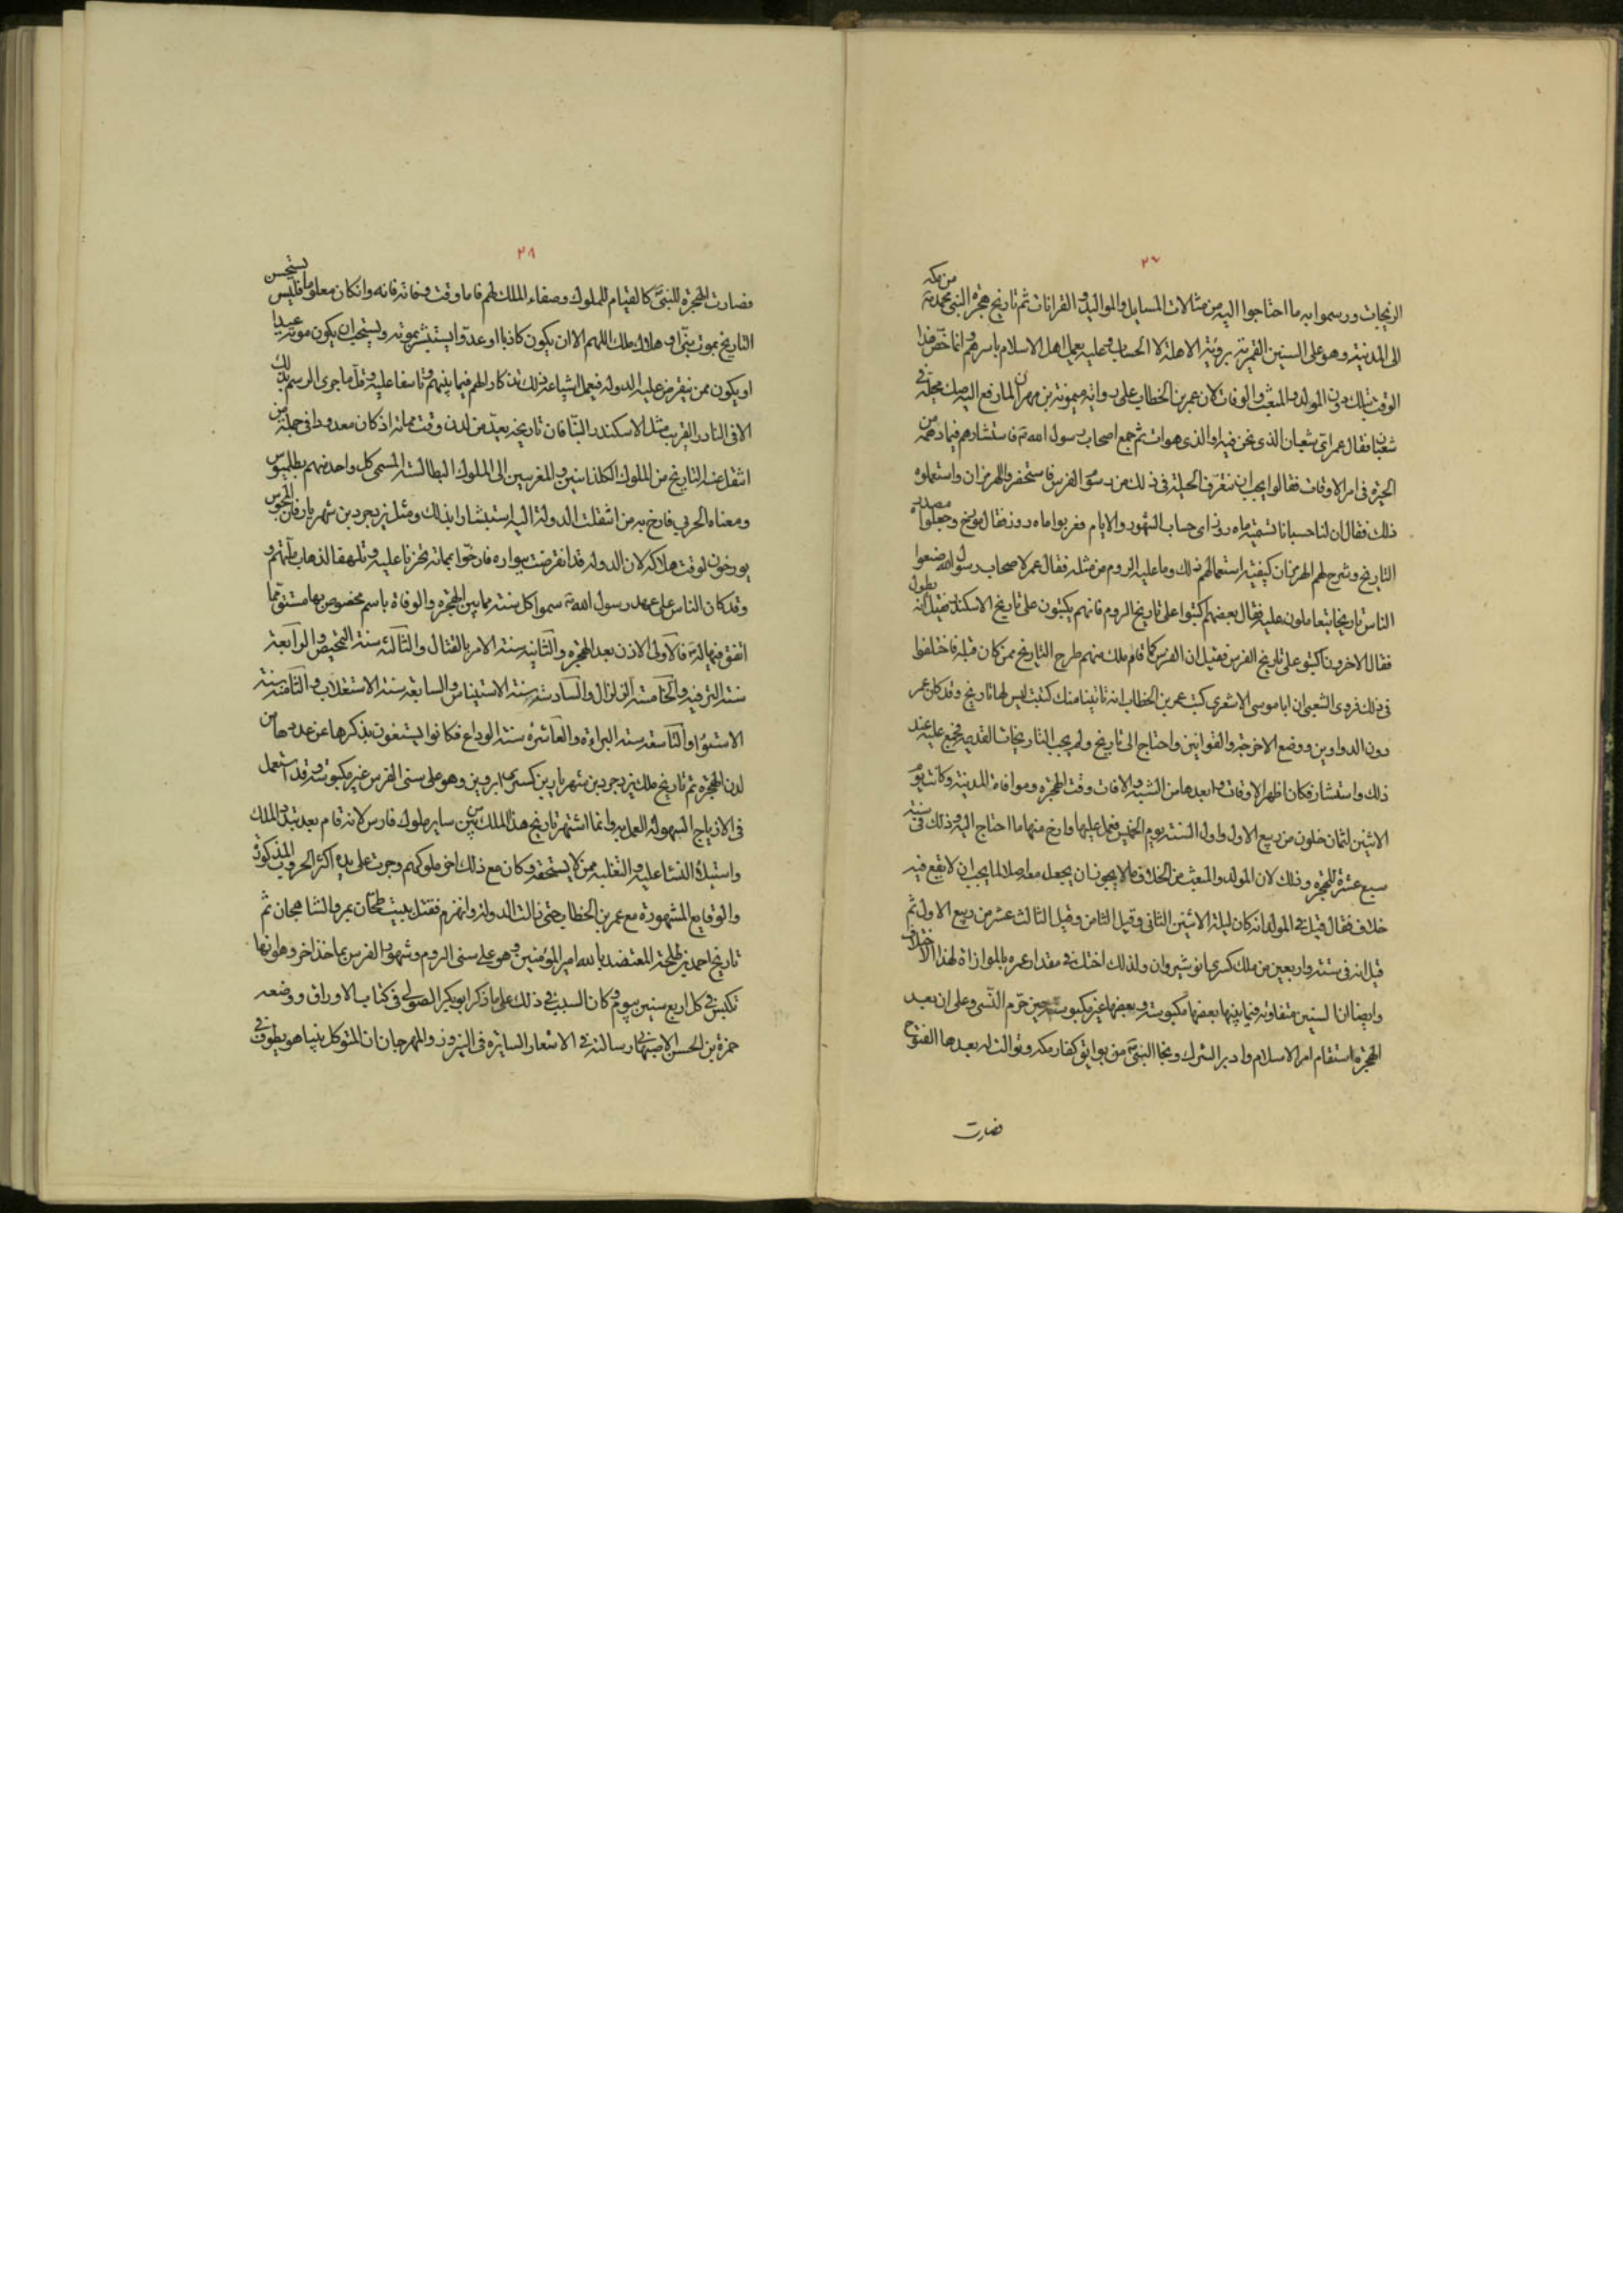 ٢٧
من مكه
الزيجات ورسموا به ما احتاجوا اليه من مثالات المسايل والمواليد والقرانات ثم تاريخ هجرة النبي محمد ص
الى المدينة وهو على السنين القمرية برؤية الاهلة لا الحساب وعليه يعمل اهل الاسلام باسرهم وانما خص هذا
الوقت بذلك دون المولد والمبعث والوفات لان عمر بن الخطاب على رواية ميمونة بن مهران لما رفع اليه صك محلّه في
شعبان فقال عمر اي شعبان الذى نحن فيه او الذى هوات ثم جمع اصحاب رسول الله ص فاستشارهم فيما دهمه من
الحيرة فى امر الاوقات فقالوا يجب ان نتعرّف الحيلة فى ذلك من رسوم الفرس فاستحضروا الهرمزان واستعملوه
ذلك فقال ان لنا حسبانا نسميه ماه روز اى حساب الشهور والايام فعربوا ماه روز فقال مورّخ وجعلوا مصدره
التاريخ وشرح لهم الهرمزان كيفية استعمالهم ذلك وما عليه الروم من مثله فقال عمر لاصحاب رسول الله ضعوا
الناس تاريخا يتعاملون عليه فقال بعضهم اكتبوا على تاريخ الروم فانهم يكتبون على تاريخ الاسكندر فقيل انه يطول
فقال الاخرون اكتبو على تاريخ الفرس فقيل ان الفرس كما قام ملك منهم طرح التاريخ ممن كان قبله فاختلفوا
فى ذلك فروى الشعبى ان ابا موسى الاشعرى كتب عمر بن الخطاب انه تاتينا منك كتب ليس لها تاريخ وقد كان عمر
دون الدواوين ووضع الاخرجة والقوانين واحتاج الى تاريخ ولم يحب التاريخات القديمة فجمع عليه عند
ذلك واستشار فكان اظهر الاوقات وابعدها من الشبه والافات وقت الهجرة وموافاة المدينة وكانت يوم
الاثنين لثمان خلون من ربيع الاول واول السنة يوم الخميس فعمل عليها وارخ منها ما احتاج اليه وذلك فى سنة
سبع عشرة للهجرة وذلك لان المولد والمبعث من الخلاف ما لا يجوز ان يجعل معه اصلا لما يجب ان لا يقع فيه
خلاف فقال قيل فى المولد انه كان ليلة الاثنين الثانى وقيل الثامن وقيل الثالث عشر من ربيع الاول ثم
قيل انه فى ستة واربعين من ملك كسرى انوشيروان ولذلك اختلف فى مقدار عمره بالموازاة لهذا الاختلاف
وايضا ان السنين متفاوته فيما بينها بعضها مكبوسة وبعضها غير مكبوسة حين حرّم النّسى وعلى ان بعد
الهجرة استقام امر الاسلام وادبر الشرك ونجا النبي ص من بوايق كفار مكه وتوالت له بعدها الفتوح
فصارت
٢٨
فصارت الهجرة للنبى ص كالقيام للملوك وصفاء الملك لهم فاما وقت وفاته فانه وان كان معلوما فليس يستحسن
التاريخ بموت نبى او هلاك ملك اللهم الا ان يكون كاذبا او عدوا يستبشر بموته ويستحب ان يكون موته عيدا
او يكون ممن تنقرض عليه الدولة فيعمل اشياعه ذلك تذكارا لهم فيما بينهم وتاسفا عليه وقل ما جرى الرسم بذلك
الا فى النادر القريب مثل الاسكندر البنّا فان تاريخه يعد من لدن وقت مماته اذ كان معدودا فى جملة من
انتقل عنه التاريخ من الملوك الكلدانيين والمغربيين الى الملوك البطالسة المسمى كل واحد منهم بطلميوس
ومعناه الحربي فارخ به من انتقلت الدولة اليه استبشارا بذلك ومثل يزدجرد بن شهريار فان المجوس
يورخون لوقت هلاكه لان الدولة قد انقرضت ببواره فارخوا بمماته تحزنا عليه وتلهفا لذهاب ملتهم
وقد كان الناس على عهد رسول الله ص سموا كل سنة مما بين الهجرة والوفاة باسم مخصوص بها مشتق مما
اتفق فيها له ص فالاولى الاذن بعد الهجرة والثانية سنة الامر بالقتال والثالثة سنة التمحيص والرابعة
سنة الترفيه والخامسة الزلزال والسادسة سنة الاستيناس والسابعة سنة الاستغلاب والثامنة سنة
الاستواء والتاسعة سنة البراءة والعاشرة سنة الوداع فكانوا يستغنون بذكرها عن عددها من
لدن الهجرة ثم تاريخ ملك يزدجرد بن شهريار بن كسرى ابرويز وهو على سنى الفرس غير مكبوسة وقد استعمل
فى الازياج لسهولة العمل به وانما اشتهر تاريخ هذا الملك من بين ساير ملوك فارس لانه قام بعد تبدد الملك
واستيلاء النساء عليه والتغلبه ممن لا يستحقه وكان مع ذلك اخر ملوكهم وجرت على يده اكثر الحروب المذكورة
والوقايع المشهورة مع عمر بن الخطاب حتى زالت الدولة وانهزم فقتل ببيت طحّان بمرو الشاهجان ثم
تاريخ احمد بن طلحة المعتضد بالله امير المؤمنين وهو على سنى الروم وشهور الفرس بماخذ اخر وهو انها
تكبس فى كل اربع سنين بيوم وكان السبب فى ذلك على ما ذكر ابو بكر الصولى فى كتاب الاوراق ووصفه
حمزة بن الحسن الاصبهانى رسالته فى الاشعار السايرة فى النيروز والمهرجان ان المتوكل بينا هو يطوف فى